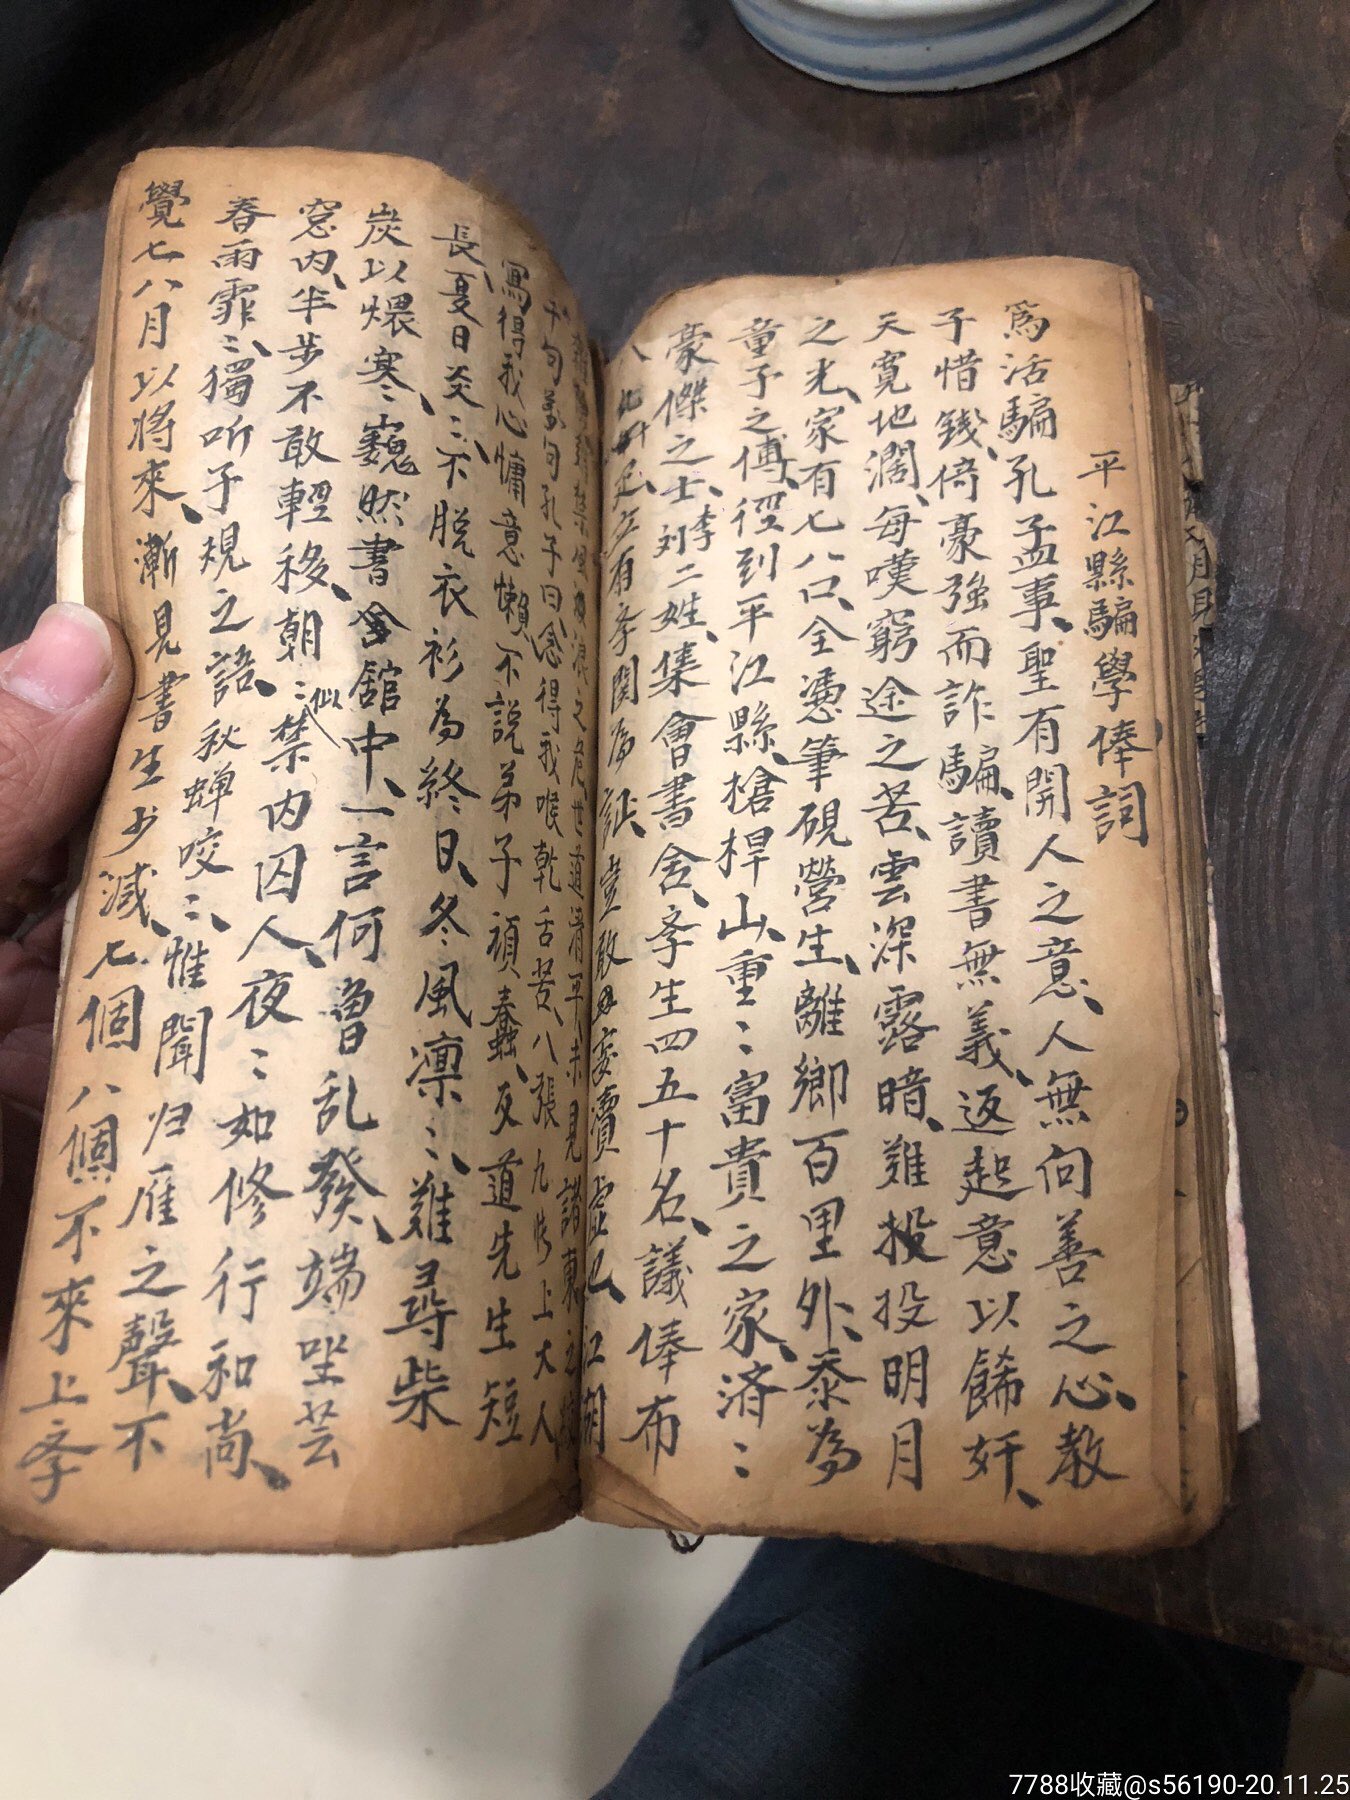 平江縣騙學俸詞
為活騙孔孟事、聖有開人之意、人無向善之心、教
子惜錢、倚豪強而詐騙、讀書無義、返起意以餙奸、
天寬地濶、每嘆窮途之苦、雲深露暗、难投投明月
之光、家有七八口、全憑筆硯營生、離鄉百里外、忝為
童子之傅、徑到平江縣、槍桿山、重〻富貴之家、濟〻
豪傑之士、李刘二姓、集會書舍、斈生四五十名、議俸布
八 有斈関為証、豈敢 虛 江湖
之危、世道清平、未見諸東之
千句萬句孔子曰、念得我喉乾舌苦、八張九 上大人
寫得我心慵意懶、不說弟子頑蠢、反道先生短
長、夏日炎〻、不脱衣衫為終日、冬風凛〻、难尋柴
炭以煨寒、巍然書舍舘中、一言何曾乱發、端坐芸
窓内、半步不敢輕移、朝〻似禁内囚人、夜〻如修行和尚、
春雨霏〻、獨听子規之語、秋蝉咬〻、惟聞归雁之聲、不
覺七八月以將來、漸見書生少减、七個八個不來上斈
7788收藏@s56190-20.11.25